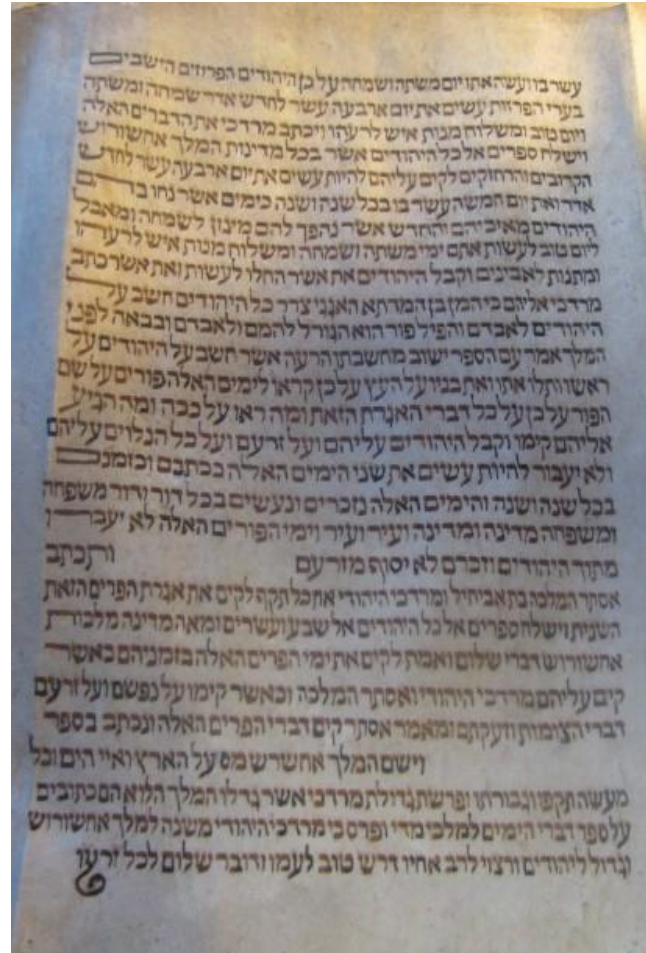 עשר בו ועשה אתו יום משתה ושמחה על כן היהודים הפרוזים הישבים
בערי הפרזות עשים את יום ארבעה עשר לחדש אדר שמחה ומשתה
ויום טוב ומשלוח מנות איש לרעהו ויכתב מרדכי את הדברים האלה
וישלח ספרים אל כל היהודים אשר בכל מדינות המלך אחשורוש
הקרובים והרחוקים לקים עליהם להיות עשים את יום ארבעה עשר לחדש
אדר ואת יום חמשה עשר בו בכל שנה ושנה כימים אשר נחו בהם
היהודים מאיביהם והחדש אשר נהפך להם מיגון לשמחה ומאבל
ליום טוב לעשות אתם ימי משתה ושמחה ומשלוח מנות איש לרעהו
ומתנות לאבינים וקבל היהודים את אשר החלו לעשות ואת אשר כתב
מרדכי אליהם כי המן בן המדתא האגגי צרר כל היהודים חשב על
היהודים לאבדם והפיל פור הוא הגורל להמם ולאבדם ובבאה לפני
המלך אמר עם הספר ישוב מחשבתו הרעה אשר חשב על היהודים על
ראשו ותלו אתו ואת בניו על העץ על כן קראו לימים האלה פורים על שם
הפור על כן על כל דברי האגרת הזאת ומה ראו על ככה ומה הגיע
אליהם קימו וקבל היהודים עליהם ועל זרעם ועל כל הנלוים עליהם
ולא יעבור להיות עשים את שני הימים האלה ככתבם וכזמנם
בכל שנה ושנה והימים האלה נזכרים ונעשים בכל דור ודור משפחה
ומשפחה מדינה ומדינה ועיר ועיר וימי הפורים האלה לא יעברו
מתוך היהודים וזכרם לא יסוף מזרעם ותכתב
אסתר המלכה בת אביחיל ומרדכי היהודי את כל תקף לקים את אגרת הפרים הזאת
השנית וישלח ספרים אל כל היהודים אל שבע ועשרים ומאה מדינה מלכות
אחשורוש דברי שלום ואמת לקים את ימי הפרים האלה בזמניהם כאשר
קים עליהם מרדכי היהודי ואסתר המלכה וכאשר קימו על נפשם ועל זרעם
דברי הצומות וזעקתם ומאמר אסתר קים דברי הפרים האלה ונכתב בספר
וישם המלך אחשרש מס על הארץ ואיי הים וכל
מעשה תקפו וגבורתו ופרשת גדולת מרדכי אשר גדלו המלך הלוא הם כתובים
על ספר דברי הימים למלכי מדי ופרס כי מרדכי היהודי משנה למלך אחשורוש
וגדול ליהודים ורצוי לרב אחיו דרש טוב לעמו ודובר שלום לכל זרעו